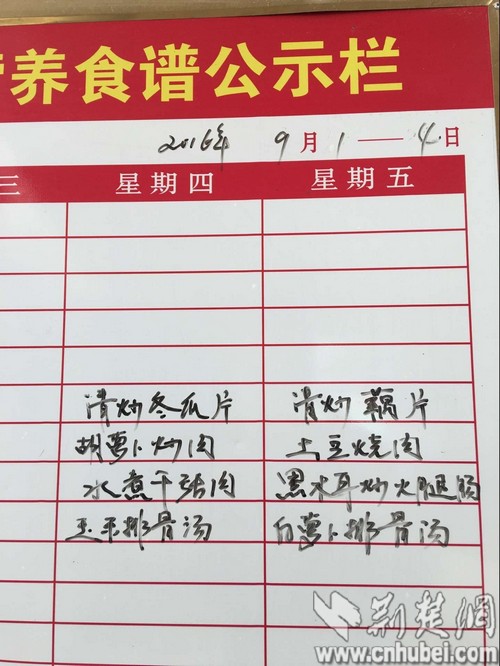 营养食谱公示栏
2016年 9月1——4日
三 星期四 星期五
清炒冬瓜片 清炒藕片
胡萝卜炒肉 土豆烧肉
水煮干张肉 黑木耳炒火腿肠
玉米排骨汤 白萝卜排骨汤
荆楚网
www.cnhubei.com